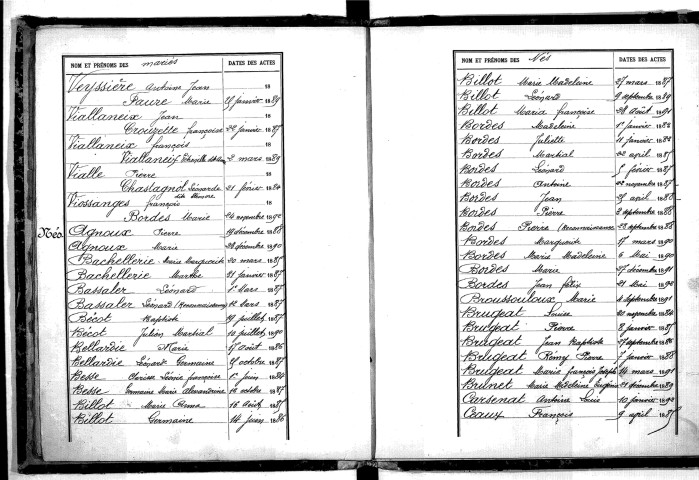 NOM ET PRÉNOMS DES mariés DATES DES ACTES
Veyssière Antoine Jean 18
Faure Marie 28 janvier 1889
Viallaneux Jean 18
Crouzette françoise 22 janvier 1887
Viallaneix françois 18
Viallaneix 2 mars 1889
Vialle Pierre 18
Chastagnol Léonarde 21 février 1884
dite
Viossanges françois 18
Bordes Marie 24 novembre 1890
Nés
Agnoux Pierre 19 décembre 1888
Agnoux Marie 28 décembre 1890
Bachellerie Marie Marguerite 30 mars 1885
Bachellerie Marthe 31 janvier 1887
Bassaler Léonard 1er mars 1887
Bassaler Léonard (Reconnaissance) 12 mars 1887
Bécot Baptiste 19 juillet 1887
Bécot Julien Martial 10 juillet 1890
Bellardie Marie 17 août 1886
Bellardie Léonard Germaine 25 octobre 1887
Besse Clarisse Léonie françoise 1er juin 1884
Besse Germaine Marie Alexandrine 12 octobre 1887
Billot Marie Anna 16 août 1887
Billot Germaine 14 juin 1886
NOM ET PRÉNOMS DES Nés DATES DES ACTES
Billot Marie Madeleine 27 mars 1887
Billot Léonard 9 septembre 1889
Billot Maria françoise 28 août 1891
Bordes Madeleine 1er janvier 1882
Bordes Juliette 11 janvier 1882
Bordes Martial 22 avril 1885
Bordes Léonard 5 février 1885
Bordes Antoine 22 novembre 1887
Bordes Jean 25 avril 1888
Bordes Pierre 2 septembre 1886
Bordes Pierre (Reconnaissance) 23 septembre 1886
Bordes Marguerite 17 mars 1890
Bordes Marie Madeleine 6 Mai 1890
Bordes Marie 27 décembre 1891
Bordes Jean félix 21 Mai 1892
Broussouloux Marie 4 septembre 1891
Brugeat Louise 20 novembre 1884
Brugeat Pierre 8 janvier 1887
Brugeat Jean Baptiste 27 septembre 1886
Brugeat Rémy Pierre 7 janvier 1888
Brugeat Marie françois Joseph 14 mars 1891
Brunet Marie Madeleine Eugénie 21 décembre 1889
Carsenat Antoine Louis 10 janvier 1892
Ceaux François 9 avril 1885